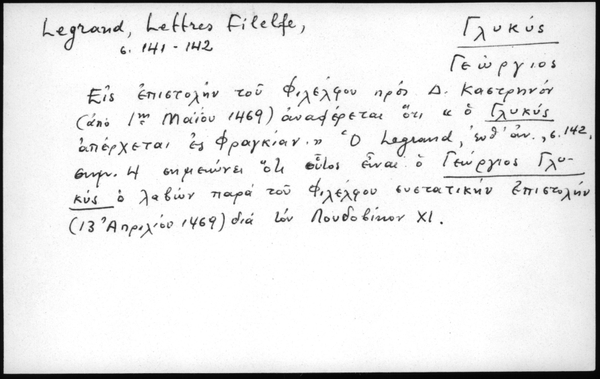 Legrand, Lettres Filelfe,
σ. 141-142
Γλυκύς
Γεώργιος
Εἰς ἐπιστολήν τοῦ Φιλέλφου πρός Δ. Καστρηνόν
(ἀπό 1ης Μαΐου 1469) ἀναφέρεται ὅτι « ὁ Γλυκύς
ἀπέρχεται ἐς Φραγκίαν.» Ὁ Legrand, ἔνθ' ἀν., σ. 142,
σημ. 4 σημειώνει ὅτι οὗτος εἶναι ὁ Γεώργιος Γλυ-
κύς ὁ λαβών παρά τοῦ Φιλέλφου συστατικήν ἐπιστολήν
(13 Ἀπριλίου 1469) διά τόν Λουδοβῖκον XI.